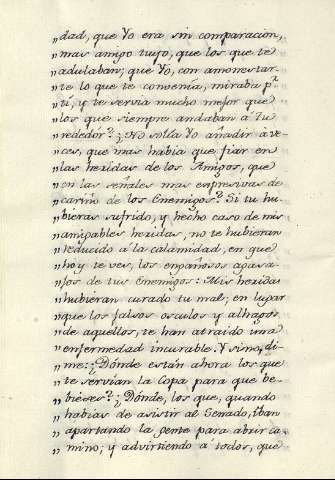 „dad, que Yo era sin comparacion,
„mas amigo tuyo, que los que te
„adulaban; que Yo, con amonestar-
„te lo que te convenia, miraba pr.
„ti, y te servia mucho mejor que
„los que siempre andaban a tu
„rededor? ¿No solia Yo añadir a ve-
„ces, que mas habia que fiar en
„las heridas de los Amigos, que
„en las señales mas expresivas de
„cariño de los Enemigos? Si tu hu-
„bieras sufrido, y hecho caso de mis
„amigables heridas, no te hubieran
„reducido a la calamidad, en que
„hoy te ves, los engañosos agasa-
„jos de tus Enemigos: Mis heridas
„hubieran curado tu mal; en lugar
„que los falsos osculos y alhagos
„de aquellos, te han atraido una
„enfermedad incurable. Y sino, di-
„me: ¿Dónde están ahora los que
„te servian la Copa, para que be-
„bieses? ¿Dónde, los que, quando
„habias de asistir al Senado, iban
„apartando la gente para abrir ca-
„mino; y advirtiendo a todos, que